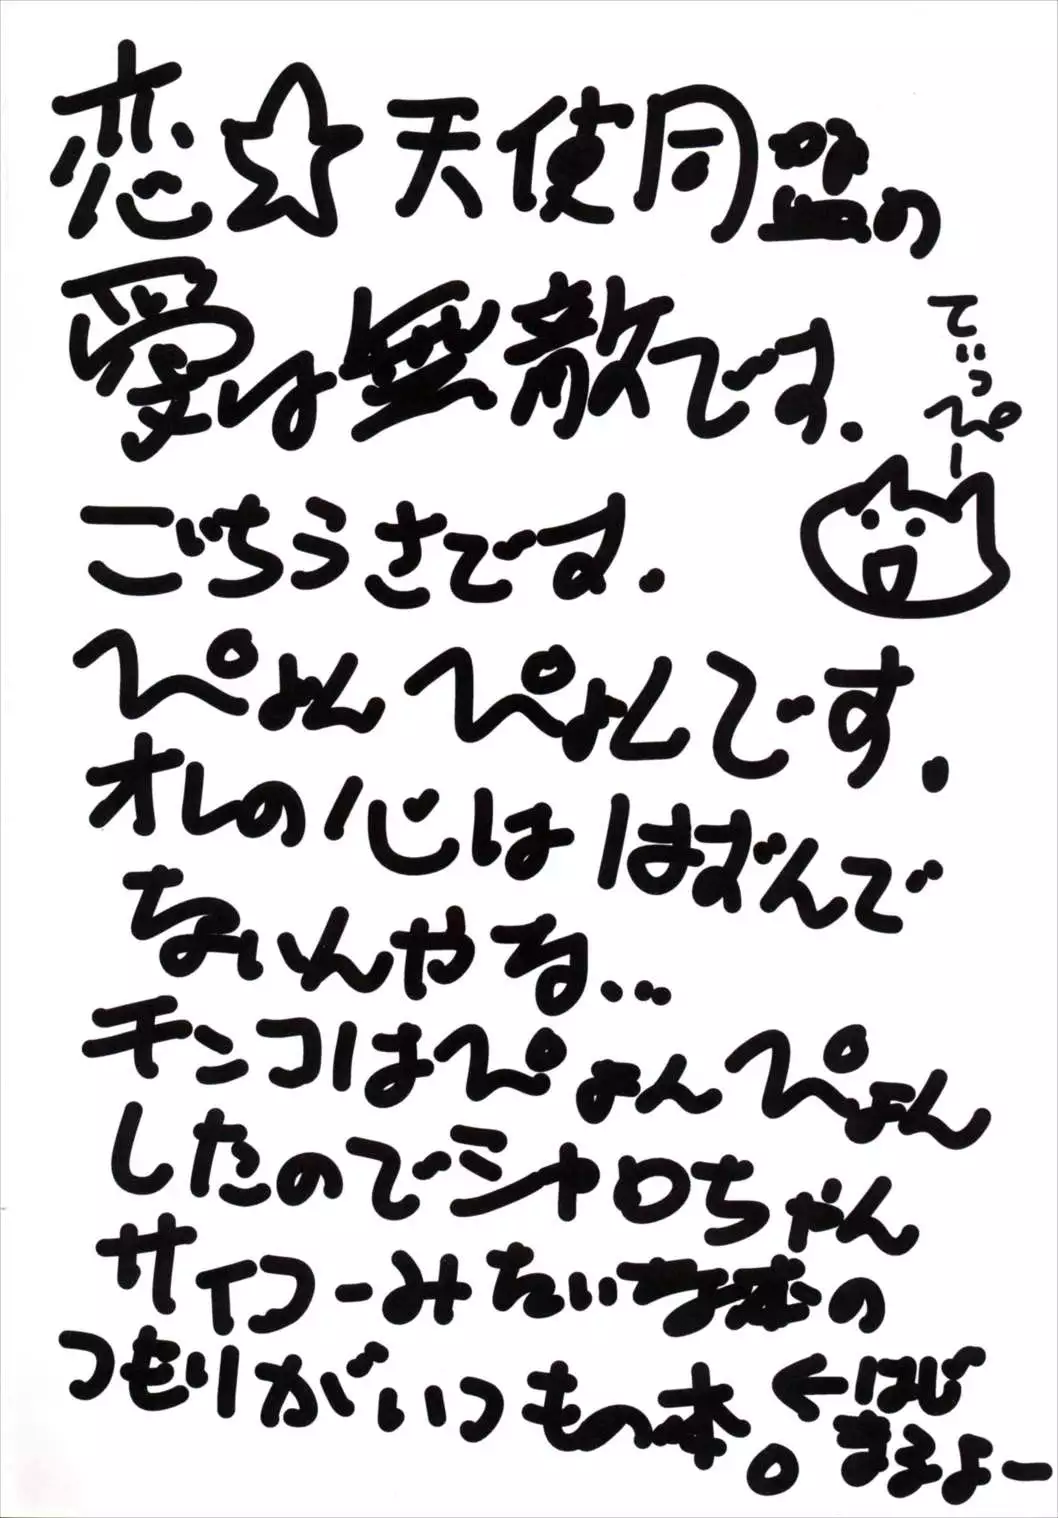 恋☆天使同盟の
愛は無敵です.
でぃっぴー
ごちうさです.
ぴょんぴょんです.
オレの心ははずんで
ないんやな…
チンコはぴょんぴょん
したのでシャロちゃん
サイコーみたいな本の
つもりがいつもの本。
←はじ
まるよー